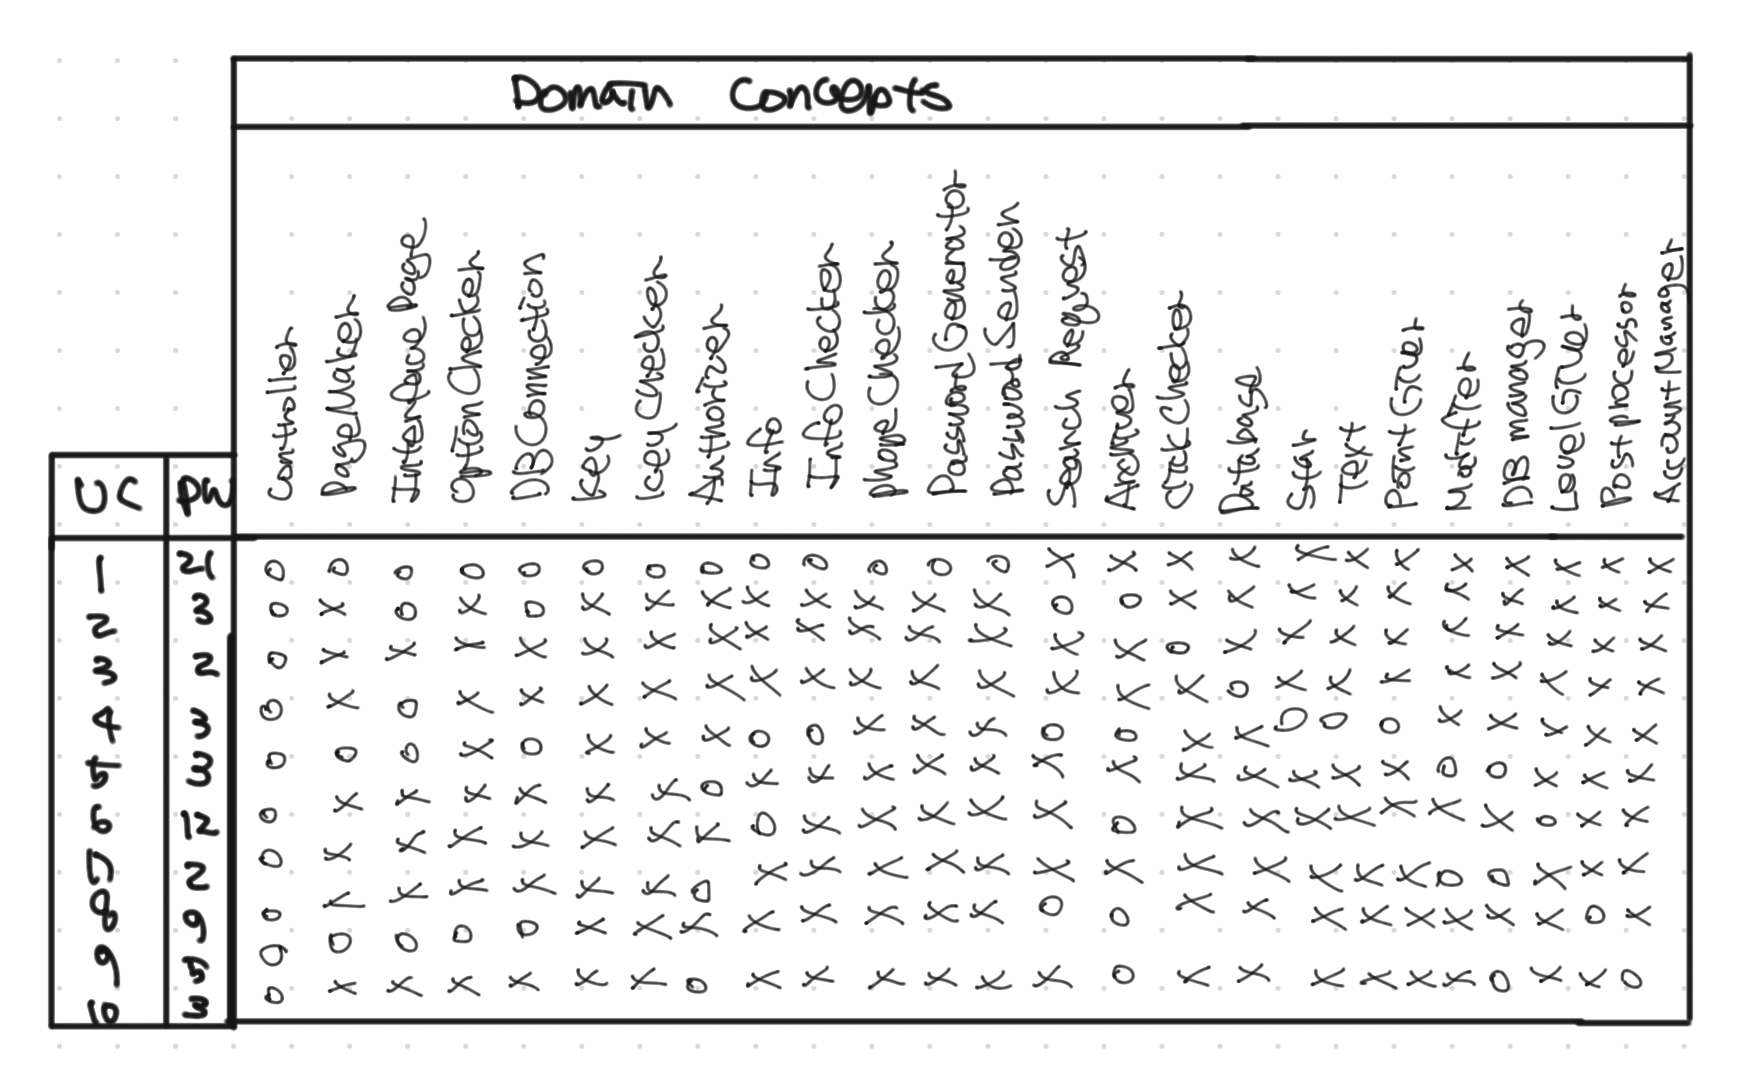 Domain Concepts
UC PW Controller PageMaker Interface Page OptionChecker DBConnection Key KeyChecker Authorizer Info InfoChecker PhoneChecker PasswordGenerator PasswordSender Search Request Archiver ClickChecker Database Star Text PointGiver Notifier DB manager LevelGiver Post processor AccountManager
1 21 O O O O O O O O O O O O O X X X X X X X X X X X X
2 3 O X O X O X X X X X X X X O O X X X X X X X X X X
3 2 O X X X X X X X X X X X X X X O X X X X X X X X X
4 3 O X O X X X X X X X X X X X X X O X X X X X X X X
5 3 O O O X O X X X O O X X X O O X X O O O X X X X X
6 12 O X X X X X X O X X X X X X X X X X X X O O X X X
7 2 O X X X X X X X O X X X X X O X X X X X X X O X X
8 9 O X X X X X X O X X X X X X X X X X X X O O X X X
9 5 O O O O O X X X X X X X X O O X X X X X X X X O X
10 3 O X X X X X X O X X X X X X O X X X X X X O X X O